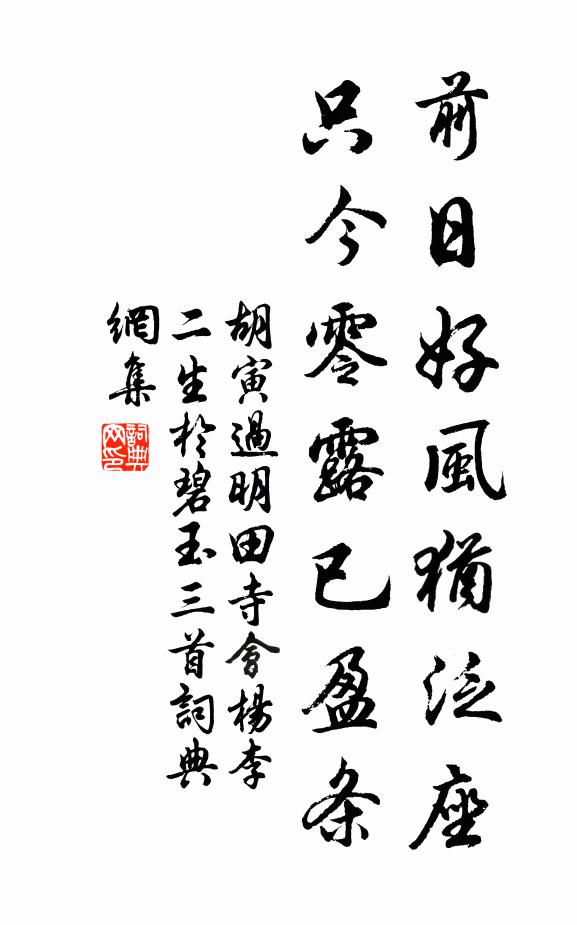 前日好風猶泛座
只今零露已盈条
胡寅過明田寺會楊李
二生於碧玉三首詞典
網集
詞典
网印